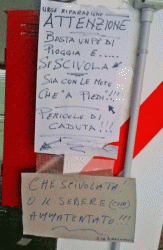 URGE RIPARAZIONE
ATTENZIONE
BASTA UN PO' DI
PIOGGIA E.....
SI SCIVOLA
SIA CON LE MOTO
CHE "A PIEDI"!...
PERICOLO DI
CADUTA!!!
CHE SCIVOLATA
O IL SEDERE
AMMATENTATO!!!